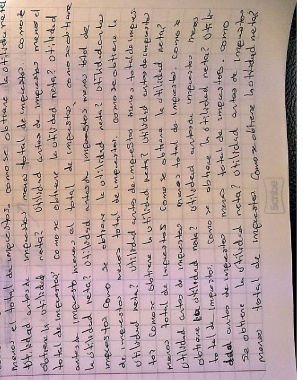 menos el total de impuestos. como se obtiene la utilidad neta
Utilidad antes de impuestos menos total de impuestos. como se
obtiene la utilidad neta? Utilidad antes de impuestos menos el
total de impuestos como se obtiene la utilidad neta? Utilidad
antes de impuesto menos el total de impuestos como se obtiene
la utilidad neta? Utilidad antes de impuestos menos total de
impuestos como se obtiene la utilidad neta? Utilidad antes
de impuestos menos total de impuestos como se obtiene la
utilidad neta? Utilidad antes de impuestos menos total de impues
tos como se obtiene la utilidad neta? Utilidad antes de impuestos
menos total de impuestos como se obtiene la utilidad neta?
Utilidad antes de impuestos menos total de impuestos como se
obtiene la utilidad neta? Utilidad antes de impuestos menos
total de impuestos como se obtiene la utilidad neta? Utili
dad antes de impuestos menos total de impuestos. como
se obtiene la utilidad neta? Utilidad antes de impuestos
menos total de impuestos como se obtiene la utilidad neta?
Scribe